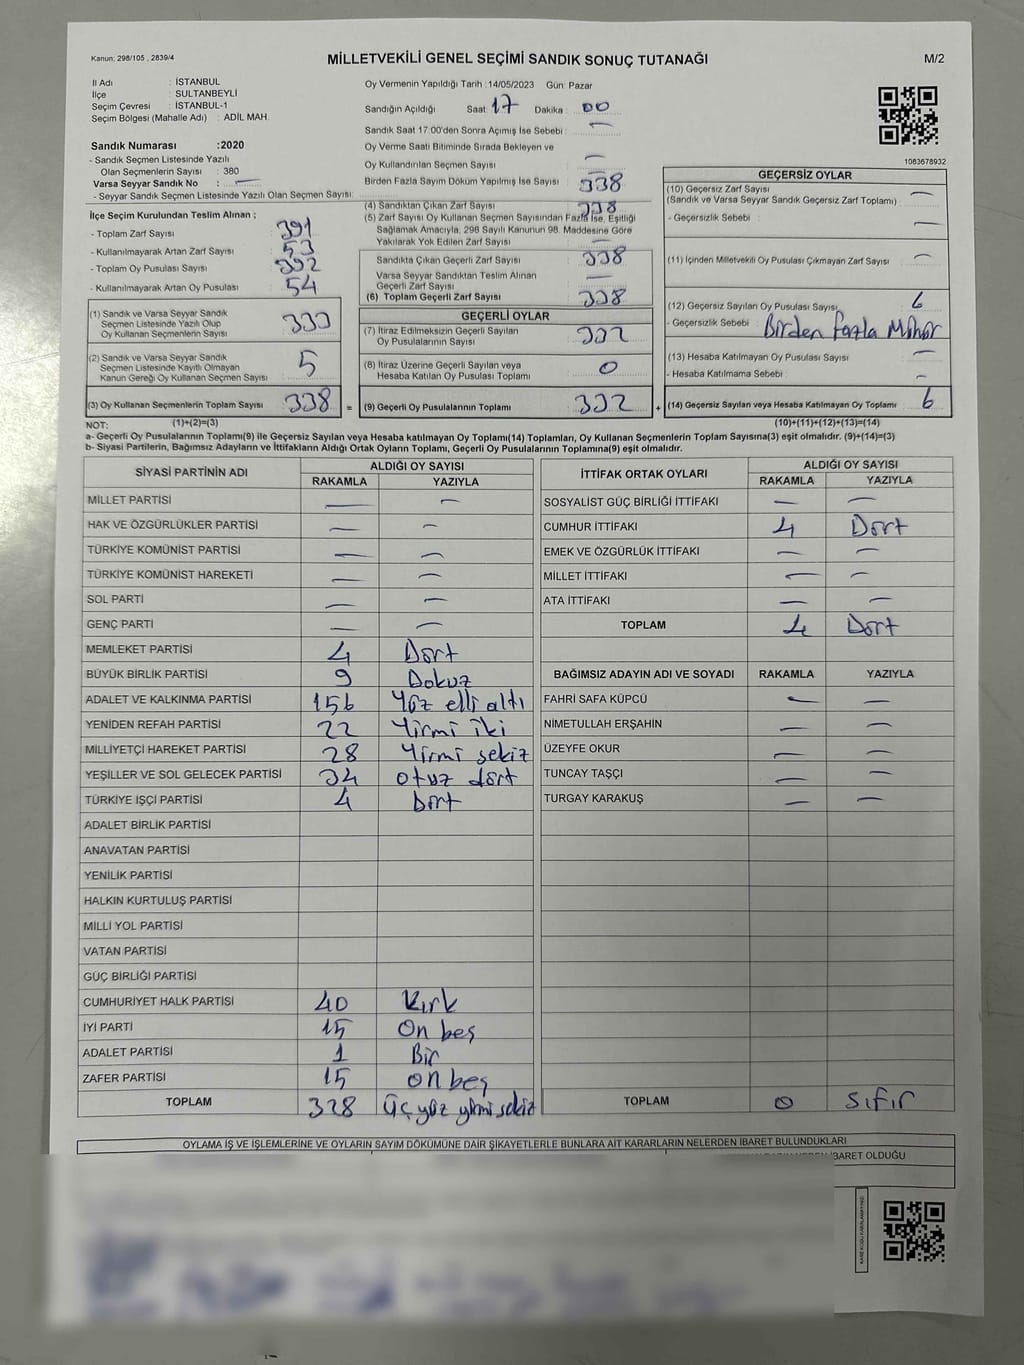 Kanun: 298/105 , 2839/4
MİLLETVEKİLİ GENEL SEÇİMİ SANDIK SONUÇ TUTANAĞI
M/2
İl Adı : İSTANBUL
İlçe : SULTANBEYLİ
Seçim Çevresi : İSTANBUL-1
Seçim Bölgesi (Mahalle Adı) : ADİL MAH.
Sandık Numarası :2020
- Sandık Seçmen Listesinde Yazılı
Olan Seçmenlerin Sayısı : 380
Varsa Seyyar Sandık No : —
- Seyyar Sandık Seçmen Listesinde Yazılı Olan Seçmen Sayısı:
İlçe Seçim Kurulundan Teslim Alınan ;
- Toplam Zarf Sayısı 391
- Kullanılmayarak Artan Zarf Sayısı : 53
- Toplam Oy Pusulası Sayısı : 392
- Kullanılmayarak Artan Oy Pusulası : 54
(1) Sandık ve Varsa Seyyar Sandık
Seçmen Listesinde Yazılı Olup
Oy Kullanan Seçmenlerin Sayısı 333
(2) Sandık ve Varsa Seyyar Sandık
Seçmen Listesinde Kayıtlı Olmayan
Kanun Gereği Oy Kullanan Seçmen Sayısı 5
(3) Oy Kullanan Seçmenlerin Toplam Sayısı 338 =
Oy Vermenin Yapıldığı Tarih :14/05/2023 Gün: Pazar
Sandığın Açıldığı Saat: 17 Dakika : 00
Sandık Saat 17:00'den Sonra Açımış İse Sebebi : —
Oy Verme Saati Bitiminde Sırada Bekleyen ve
Oy Kullandırılan Seçmen Sayısı : —
Birden Fazla Sayım Döküm Yapılmış İse Sayısı : 338
(4) Sandıktan Çıkan Zarf Sayısı : 338
(5) Zarf Sayısı Oy Kullanan Seçmen Sayısından Fazla İse, Eşitliği
Sağlamak Amacıyla, 298 Sayılı Kanunun 98. Maddesine Göre
Yakılarak Yok Edilen Zarf Sayısı : —
Sandıkta Çıkan Geçerli Zarf Sayısı : 338
Varsa Seyyar Sandıktan Teslim Alınan
Geçerli Zarf Sayısı : —
(6) Toplam Geçerli Zarf Sayısı : 338
GEÇERLİ OYLAR
(7) İtiraz Edilmeksizin Geçerli Sayılan
Oy Pusulalarının Sayısı : 332
(8) İtiraz Üzerine Geçerli Sayılan veya
Hesaba Katılan Oy Pusulası Toplamı : 0
(9) Geçerli Oy Pusulalarının Toplamı : 332 +
1083678932
GEÇERSİZ OYLAR
(10) Geçersiz Zarf Sayısı : —
(Sandık ve Varsa Seyyar Sandık Geçersiz Zarf Toplamı)
- Geçersizlik Sebebi : —
(11) İçinden Milletvekili Oy Pusulası Çıkmayan Zarf Sayısı : —
(12) Geçersiz Sayılan Oy Pusulası Sayısı : 6
- Geçersizlik Sebebi : Birden fazla Mühür
(13) Hesaba Katılmayan Oy Pusulası Sayısı : —
- Hesaba Katılmama Sebebi : —
(14) Geçersiz Sayılan veya Hesaba Katılmayan Oy Toplamı : 6
NOT: (1)+(2)=(3) (10)+(11)+(12)+(13)=(14)
a- Geçerli Oy Pusulalarının Toplamı(9) ile Geçersiz Sayılan veya Hesaba katılmayan Oy Toplamı(14) Toplamları, Oy Kullanan Seçmenlerin Toplam Sayısına(3) eşit olmalıdır. (9)+(14)=(3)
b- Siyasi Partilerin, Bağımsız Adayların ve İttifakların Aldığı Ortak Oyların Toplamı, Geçerli Oy Pusulalarının Toplamına(9) eşit olmalıdır.
SİYASİ PARTİNİN ADI ALDIĞI OY SAYISI
RAKAMLA YAZIYLA
MİLLET PARTİSİ — —
HAK VE ÖZGÜRLÜKLER PARTİSİ — —
TÜRKİYE KOMÜNİST PARTİSİ — —
TÜRKİYE KOMÜNİST HAREKETİ — —
SOL PARTİ — —
GENÇ PARTİ — —
MEMLEKET PARTİSİ 4 Dört
BÜYÜK BİRLİK PARTİSİ 9 Dokuz
ADALET VE KALKINMA PARTİSİ 156 Yüz elli altı
YENİDEN REFAH PARTİSİ 22 Yirmi iki
MİLLİYETÇİ HAREKET PARTİSİ 28 Yirmi sekiz
YEŞİLLER VE SOL GELECEK PARTİSİ 34 otuz dört
TÜRKİYE İŞÇİ PARTİSİ 4 Dört
ADALET BİRLİK PARTİSİ
ANAVATAN PARTİSİ
YENİLİK PARTİSİ
HALKIN KURTULUŞ PARTİSİ
MİLLİ YOL PARTİSİ
VATAN PARTİSİ
GÜÇ BİRLİĞİ PARTİSİ
CUMHURİYET HALK PARTİSİ 40 Kırk
İYİ PARTİ 15 On beş
ADALET PARTİSİ 1 Bir
ZAFER PARTİSİ 15 on beş
TOPLAM 328 üç yüz yirmi sekiz
İTTİFAK ORTAK OYLARI ALDIĞI OY SAYISI
RAKAMLA YAZIYLA
SOSYALİST GÜÇ BİRLİĞİ İTTİFAKI — —
CUMHUR İTTİFAKI 4 Dört
EMEK VE ÖZGÜRLÜK İTTİFAKI — —
MİLLET İTTİFAKI — —
ATA İTTİFAKI — —
TOPLAM 4 Dört
BAĞIMSIZ ADAYIN ADI VE SOYADI RAKAMLA YAZIYLA
FAHRİ SAFA KÜPCÜ — —
NİMETULLAH ERŞAHİN — —
ÜZEYFE OKUR — —
TUNCAY TAŞÇI — —
TURGAY KARAKUŞ — —
TOPLAM 0 sıfır
OYLAMA İŞ VE İŞLEMLERİNE VE OYLARIN SAYIM DÖKÜMÜNE DAİR ŞİKAYETLERLE BUNLARA AİT KARARLARIN NELERDEN İBARET BULUNDUKLARI
İBARET OLDUĞU
KARE KODU KARALAMAYINIZ